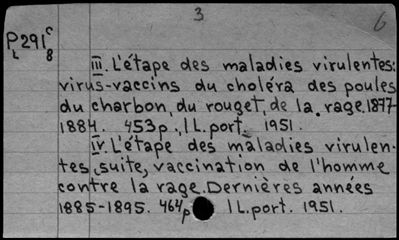 3
6
P291c
L 8
III. L'étape des maladies virulentes:
virus-vaccins du choléra des poules
du charbon, du rouget, de la rage. 1877-
1884. 453p., 1 L. port. 1951.
IV. L'étape des maladies virulen-
tes, suite, vaccination de l'homme
contre la rage. Dernières années
1885-1895. 464p 1 L. port. 1951.